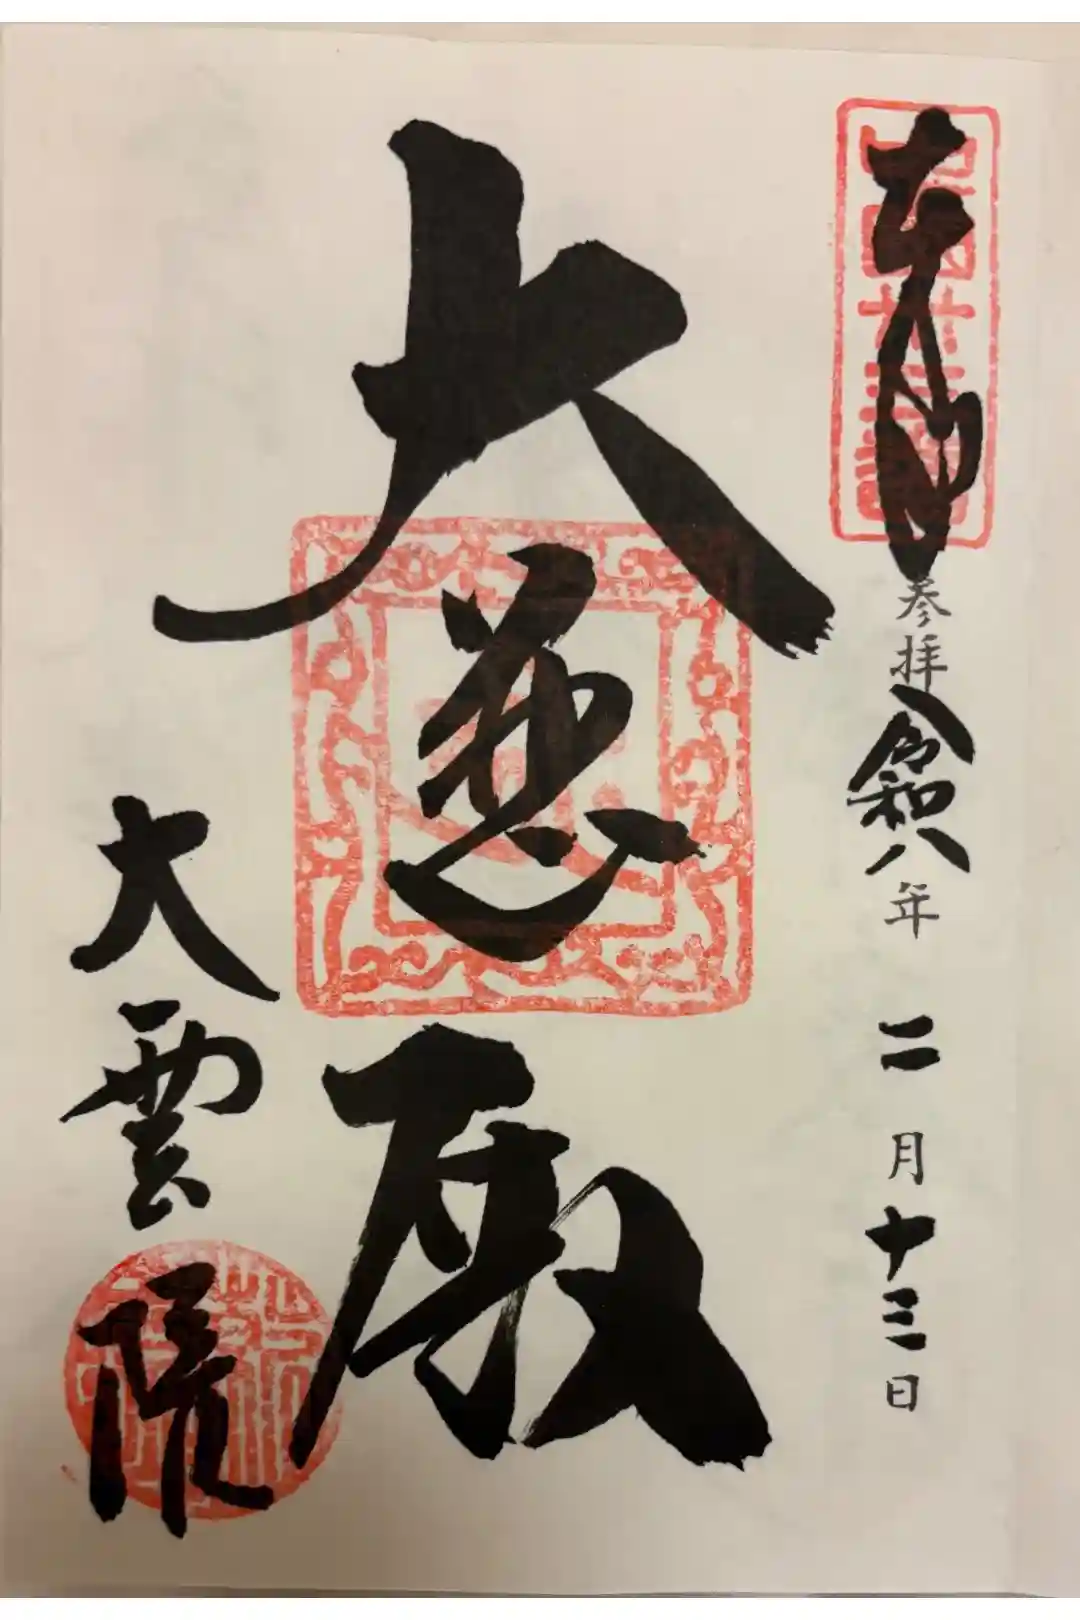 奉拝 参拝 令和八年 二月十三日
大悲殿
大雲院